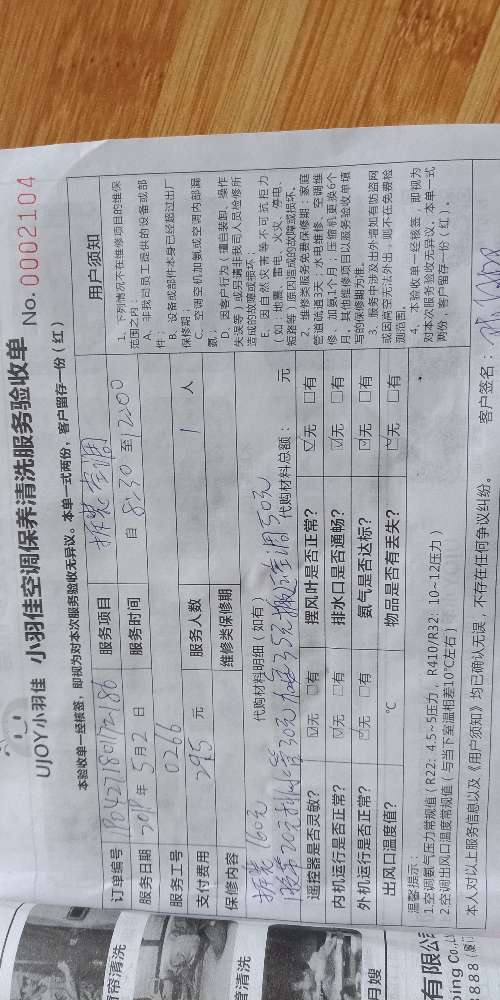 UJOY小羽佳 小羽佳空调保养清洗服务验收单 No. 0002104
本验收单一经核签,即视为对本次服务验收无异议。本单一式两份,客户留存一份(红)
订单编号 服务项目 拆装空调
服务日期 2018年5月2日 服务时间 自 8:30 至 12:00
服务工号 0266
支付费用 295 元 服务人数 1 人
保修内容 维修类保修期
代购材料明细(如有) 代购材料总额: 元
拆装 160元
遥控器是否灵敏? ☑无 □有 摆风叶是否正常? ☑无 □有
内机运行是否正常? ☑无 □有 排水口是否通畅? ☑无 □有
外机运行是否正常? ☑无 □有 氨气是否达标? ☑无 □有
出风口温度值? ℃ 物品是否有丢失? ☑无 □有
温馨提示:
1.空调氨气压力常规值(R22:4.5~5压力,R410/R32:10~12压力)
2.空调出风口温度常规值(与当下室温相差10℃左右)
本人对以上服务信息以及《用户须知》均已确认无误,不存在任何争议纠纷。 客户签名:
用户须知
1、下列情况不在维修项目的维保
范围之内:
A、非我司员工提供的设备或部
件;
B、设备或部件本身已经超过出厂
保修期;
C、空调空机加氨或空调内部漏
氨。
D、因用户行为:擅自装卸、操作
失误等,或另请非我司人员检修所
造成的故意或损坏;
E、因自然灾害等不可抗拒力
(如:地震、雷电、火灾、停电、
短路等)原因造成的故障或损坏。
2、维修类服务免费保修期:家庭
管道疏通3天;水电维修、空调维
修、加氨1个月;压缩机更换6个
月,其他维修项目以服务验收单填
写的保修期为准。
3、服务中涉及出外墙如有防盗网
或因高空无法外出,则不在免费检
测范围。
4、本验收单一经核签,即视为
对本次服务验收无异议,本单一式
两份,客户留存一份(红)。
有限公
ing Co.,L
8888(厦门
帘清洗
管清洗
月嫂